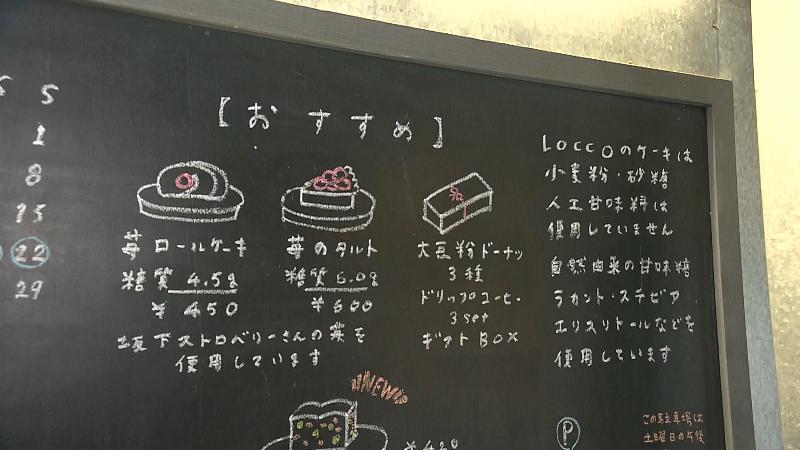 S
1
8
15
22
29
【おすすめ】
苺ロールケーキ
糖質 4.5g
¥450
苺のタルト
糖質 6.0g
¥600
坂下ストロベリーさんの苺を
使用しています
大豆粉ドーナツ
3種
ドリップコーヒー
3set
ギフトBOX
LOCCOのケーキは
小麦粉・砂糖
人工甘味料は
使用していません
自然由来の甘味糖
ラカント・ステビア
エリスリトールなどを
使用しています
NEW
P
この駐車場は
土曜日の午後